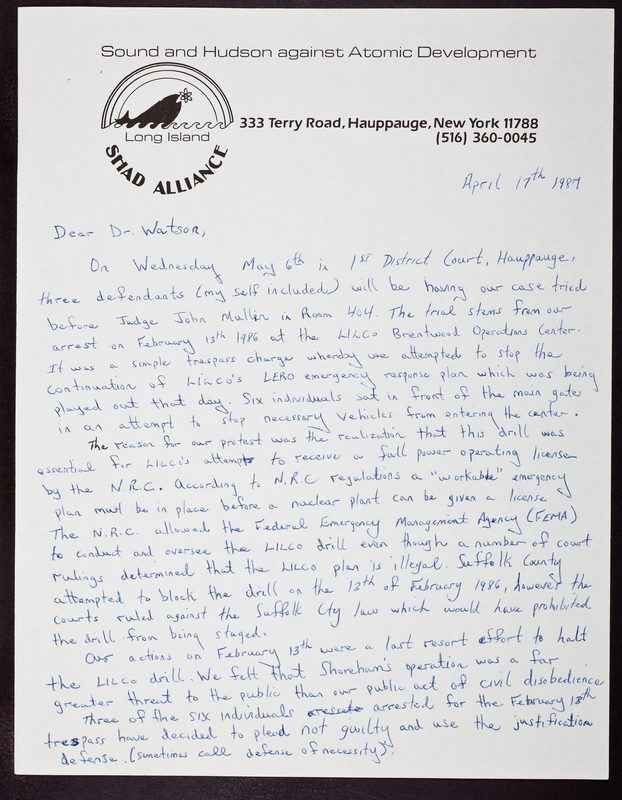 Sound and Hudson against Atomic Development
Long Island
SHAD ALLIANCE
333 Terry Road, Hauppauge, New York 11788
(516) 360-0045
April 17th 1987
Dear Dr. Watson,
On Wednesday May 6th in 1ST District Court, Hauppauge,
three defendants (my self included) will be having our case tried
before Judge John Mullin in Room 404. The trial stems from our
arrest on February 13th 1986 at the LILCO Brentwood Operations Center.
It was a simple trespass charge whereby we attempted to stop the
continuation of LILCO's LERO emergency response plan which was being
played out that day. Six individuals sat in front of the main gate
in an attempt to stop necessary vehicles from entering the center.
The reason for our protest was the realization that this drill was
essential for LILCO's attempt to receive a full power operating license
by the N.R.C. According to N.R.C regulations a "workable" emergency
plan must be in place before a nuclear plant can be given a license
The N.R.C. allowed the Federal Emergency Management Agency (FEMA)
to conduct and oversee the LILCO drill even though a number of court
rulings determined that the LILCO plan is illegal. Suffolk County
attempted to block the drill on the 13th of February 1986, however the
courts ruled against the Suffolk Cty law which would have prohibited
the drill from being staged.
Our actions on February 13th were a last resort effort to halt
the LILCO drill. We felt that Shoreham's operation was a far
greater threat to the public than our public act of civil disobedience
Three of the six individuals arrested for the February 13th
trespass have decided to plead not guilty and use the justification
defense. (sometimes call defense of necessity).